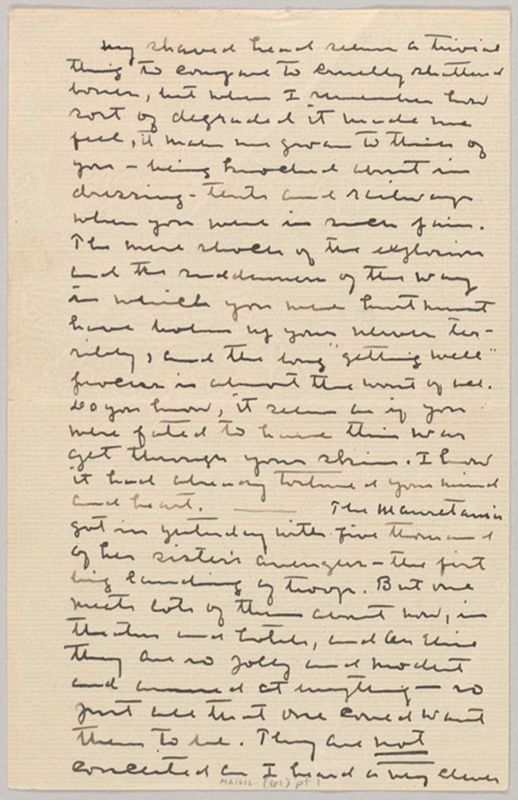 my shaved head seems a trivial
thing to compare to cruelly shattered
bones, but when I remember how
sort of degraded it made me
feel, it makes me groan to think of
you - being knocked about in
dressing-tents and railways
when you were in such pain.
The mere shock of the explosion
and the suddenness of the way
in which you were hurt must
have broken up your nerves ter-
ribly, and the long "getting well"
process is almost the worst of all.
Do you know, it seems as if you
were fated to have this war
get through your skin. I know
it had already tortured your mind
and heart. ——— The Mauretania
got in yesterday with five thousand
of her sister's avengers - the first
big landing of troops. But one
meets lots of them about now, in
theatres and hotels, and as Elsie
they are so jolly and modest
and amused at everything - so
just all that one could want
them to be. They are not
conceited as I heard a very clever
MA1602-(62) pt 1